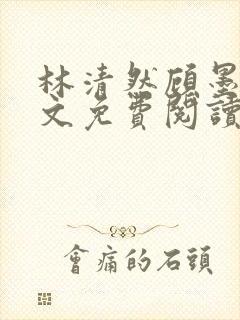 林清然顾墨
文免費閱讀
會痛的石頭